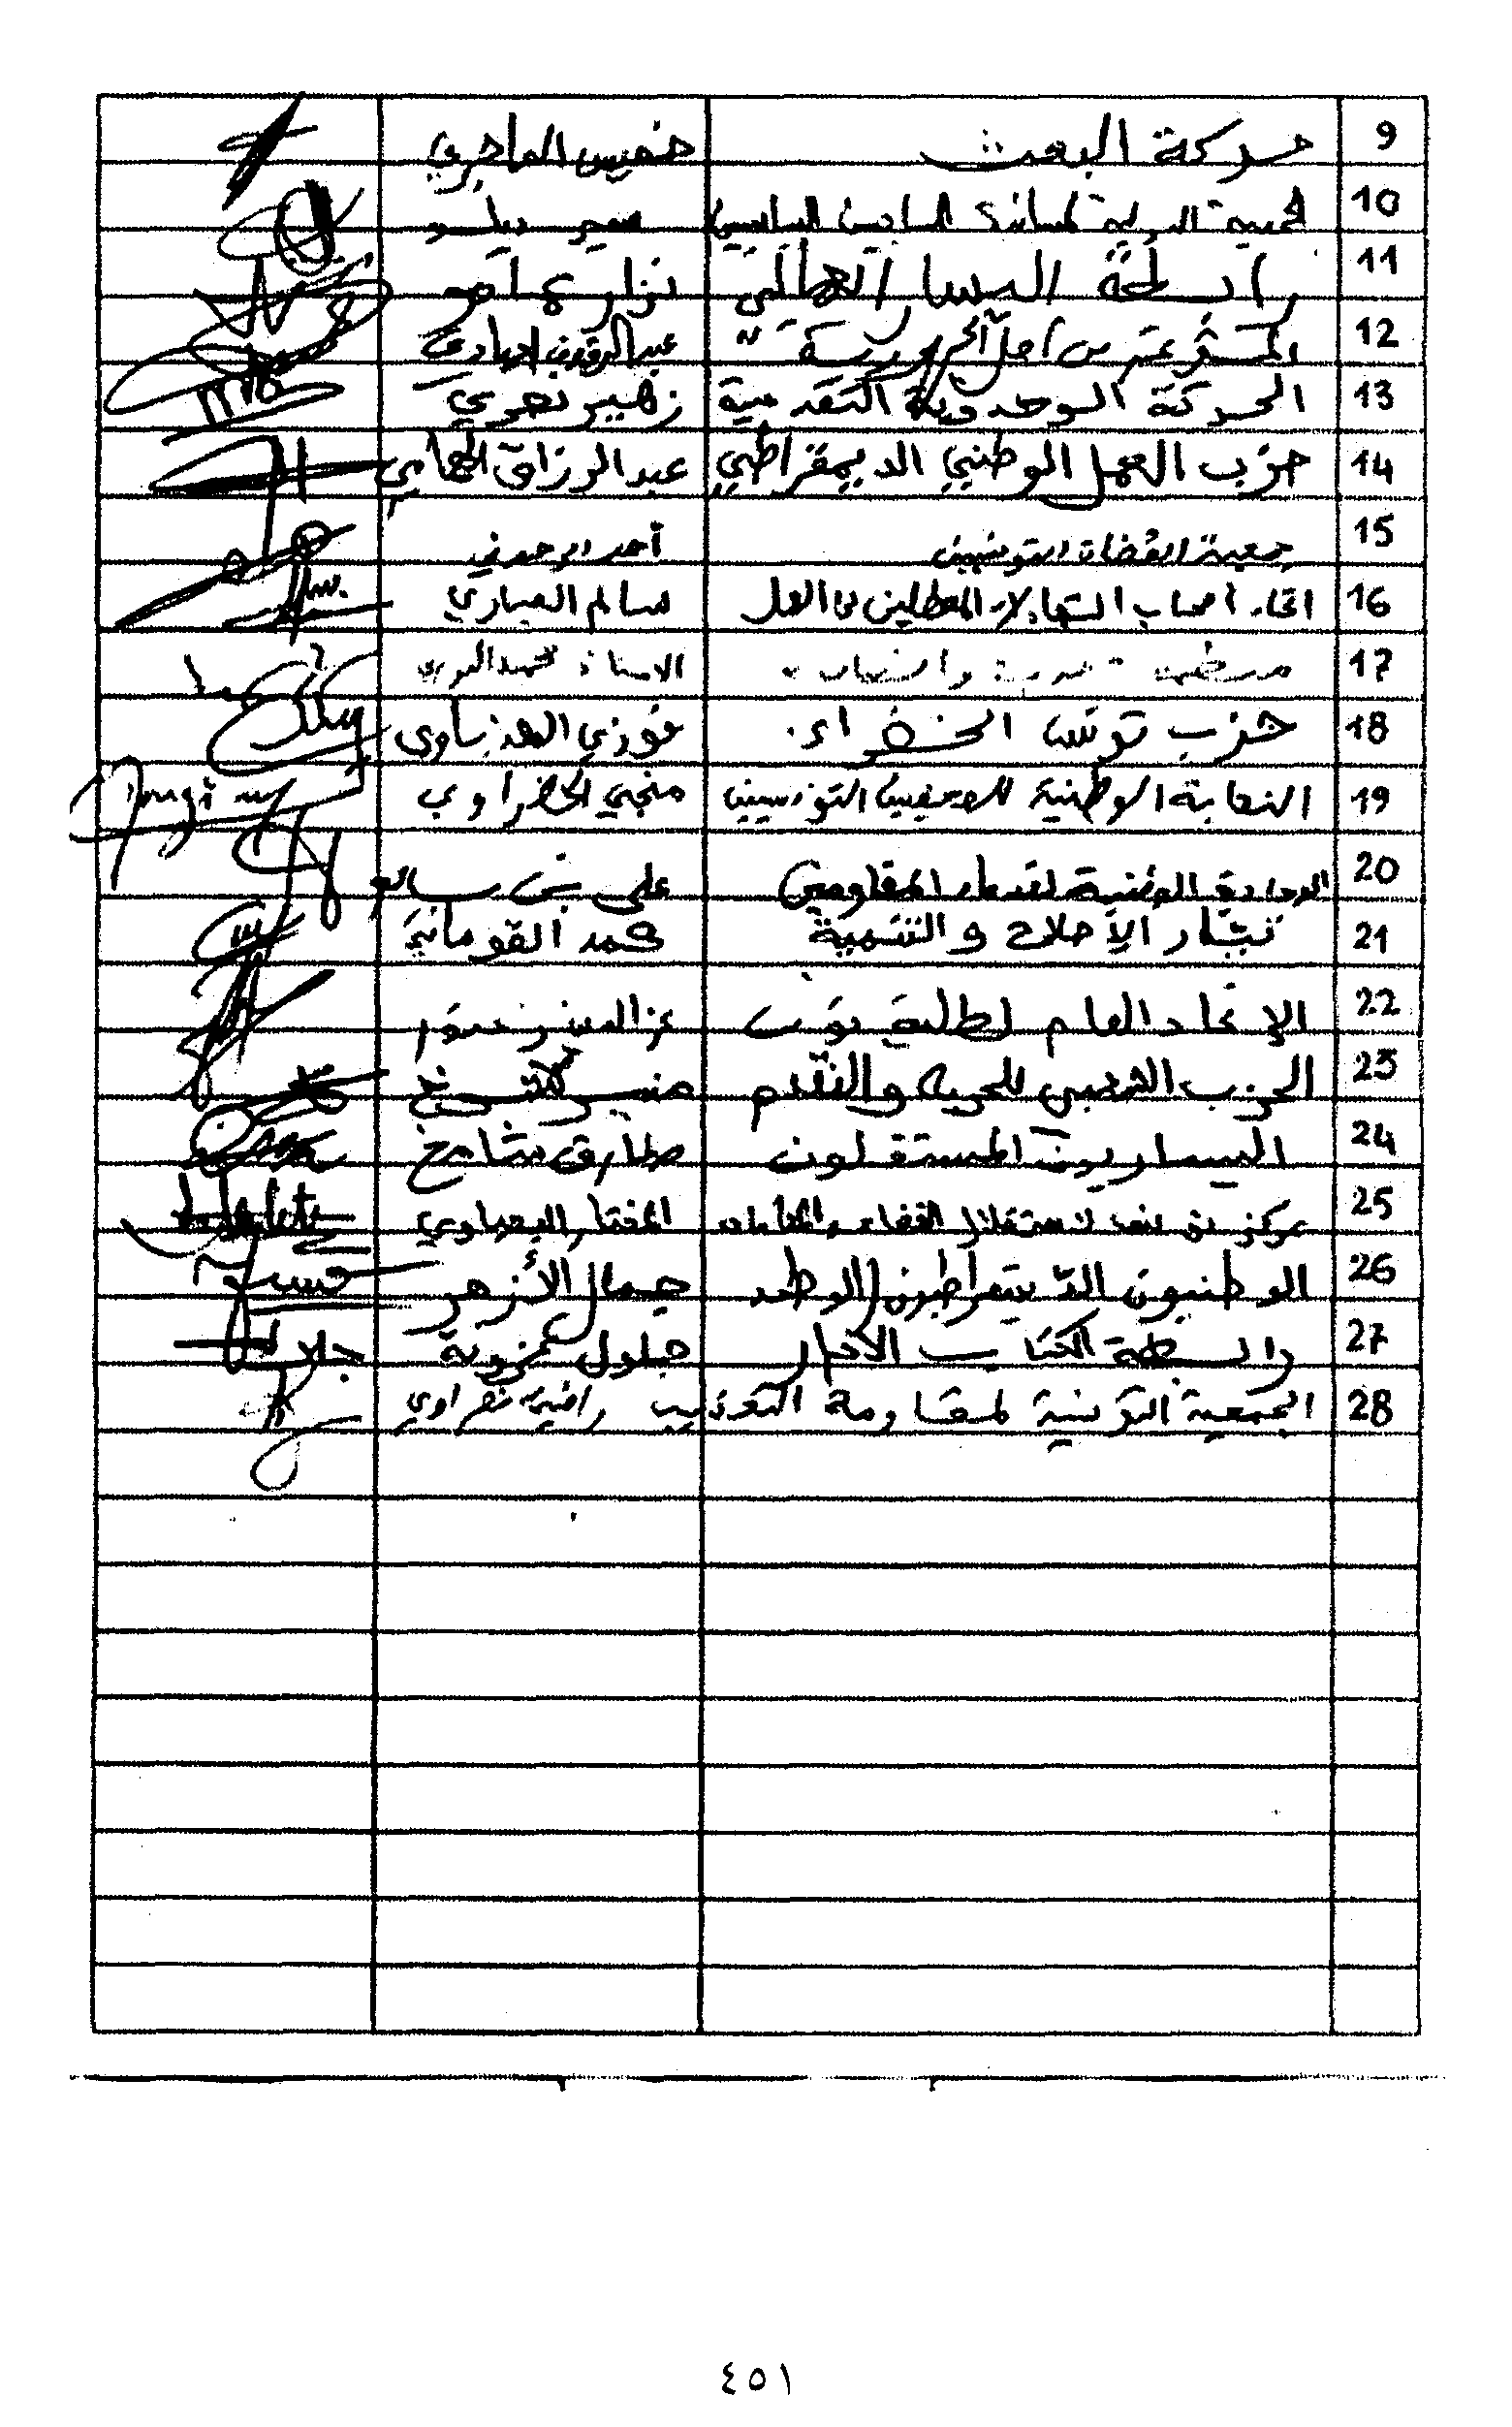 9 حركة البعث خميس الماجري
10 الجمعية الدولية لمساندة المساجين السياسيين سمير ديلو
11 رابطة اليسار العمالي نزار عمامو
12 المؤتمر من أجل الجمهورية عبد الرؤوف العيادي
13 الحركة الوحدوية التقدمية زهير نصري
14 حزب العمل الوطني الديمقراطي عبد الرزاق الهمامي
15 جمعية القضاة التونسيين أحمد الرحموني
16 اتحاد أصحاب الشهادات المعطلين عن العمل سالم العياري
17 منظمة حرية وإنصاف الأستاذ محمد النوري
18 حزب تونس الخضراء فوزي الهذباوي
19 النقابة الوطنية للصحفيين التونسيين منجي الخضراوي
20 الودادية الوطنية لقدماء المقاومين علي بن سالم
21 تيار الإصلاح والتنمية محمد القوماني
22 الإتحاد العام لطلبة تونس عز الدين زعتور
23 الحزب الشعبي للحرية والتقدم منير
24 اليساريون المستقلون طارق شامخ
25 مركز تونس لاستقلال القضاء والمحاماة المختار اليحياوي
26 الوطنيون الديمقراطيون (الوطد جمال الأزهر
27 رابطة الكتاب الأحرار جلول عزونة
جلول
28 الجمعية التونسية لمقاومة التعذيب راضية نصراوي
٤٥١